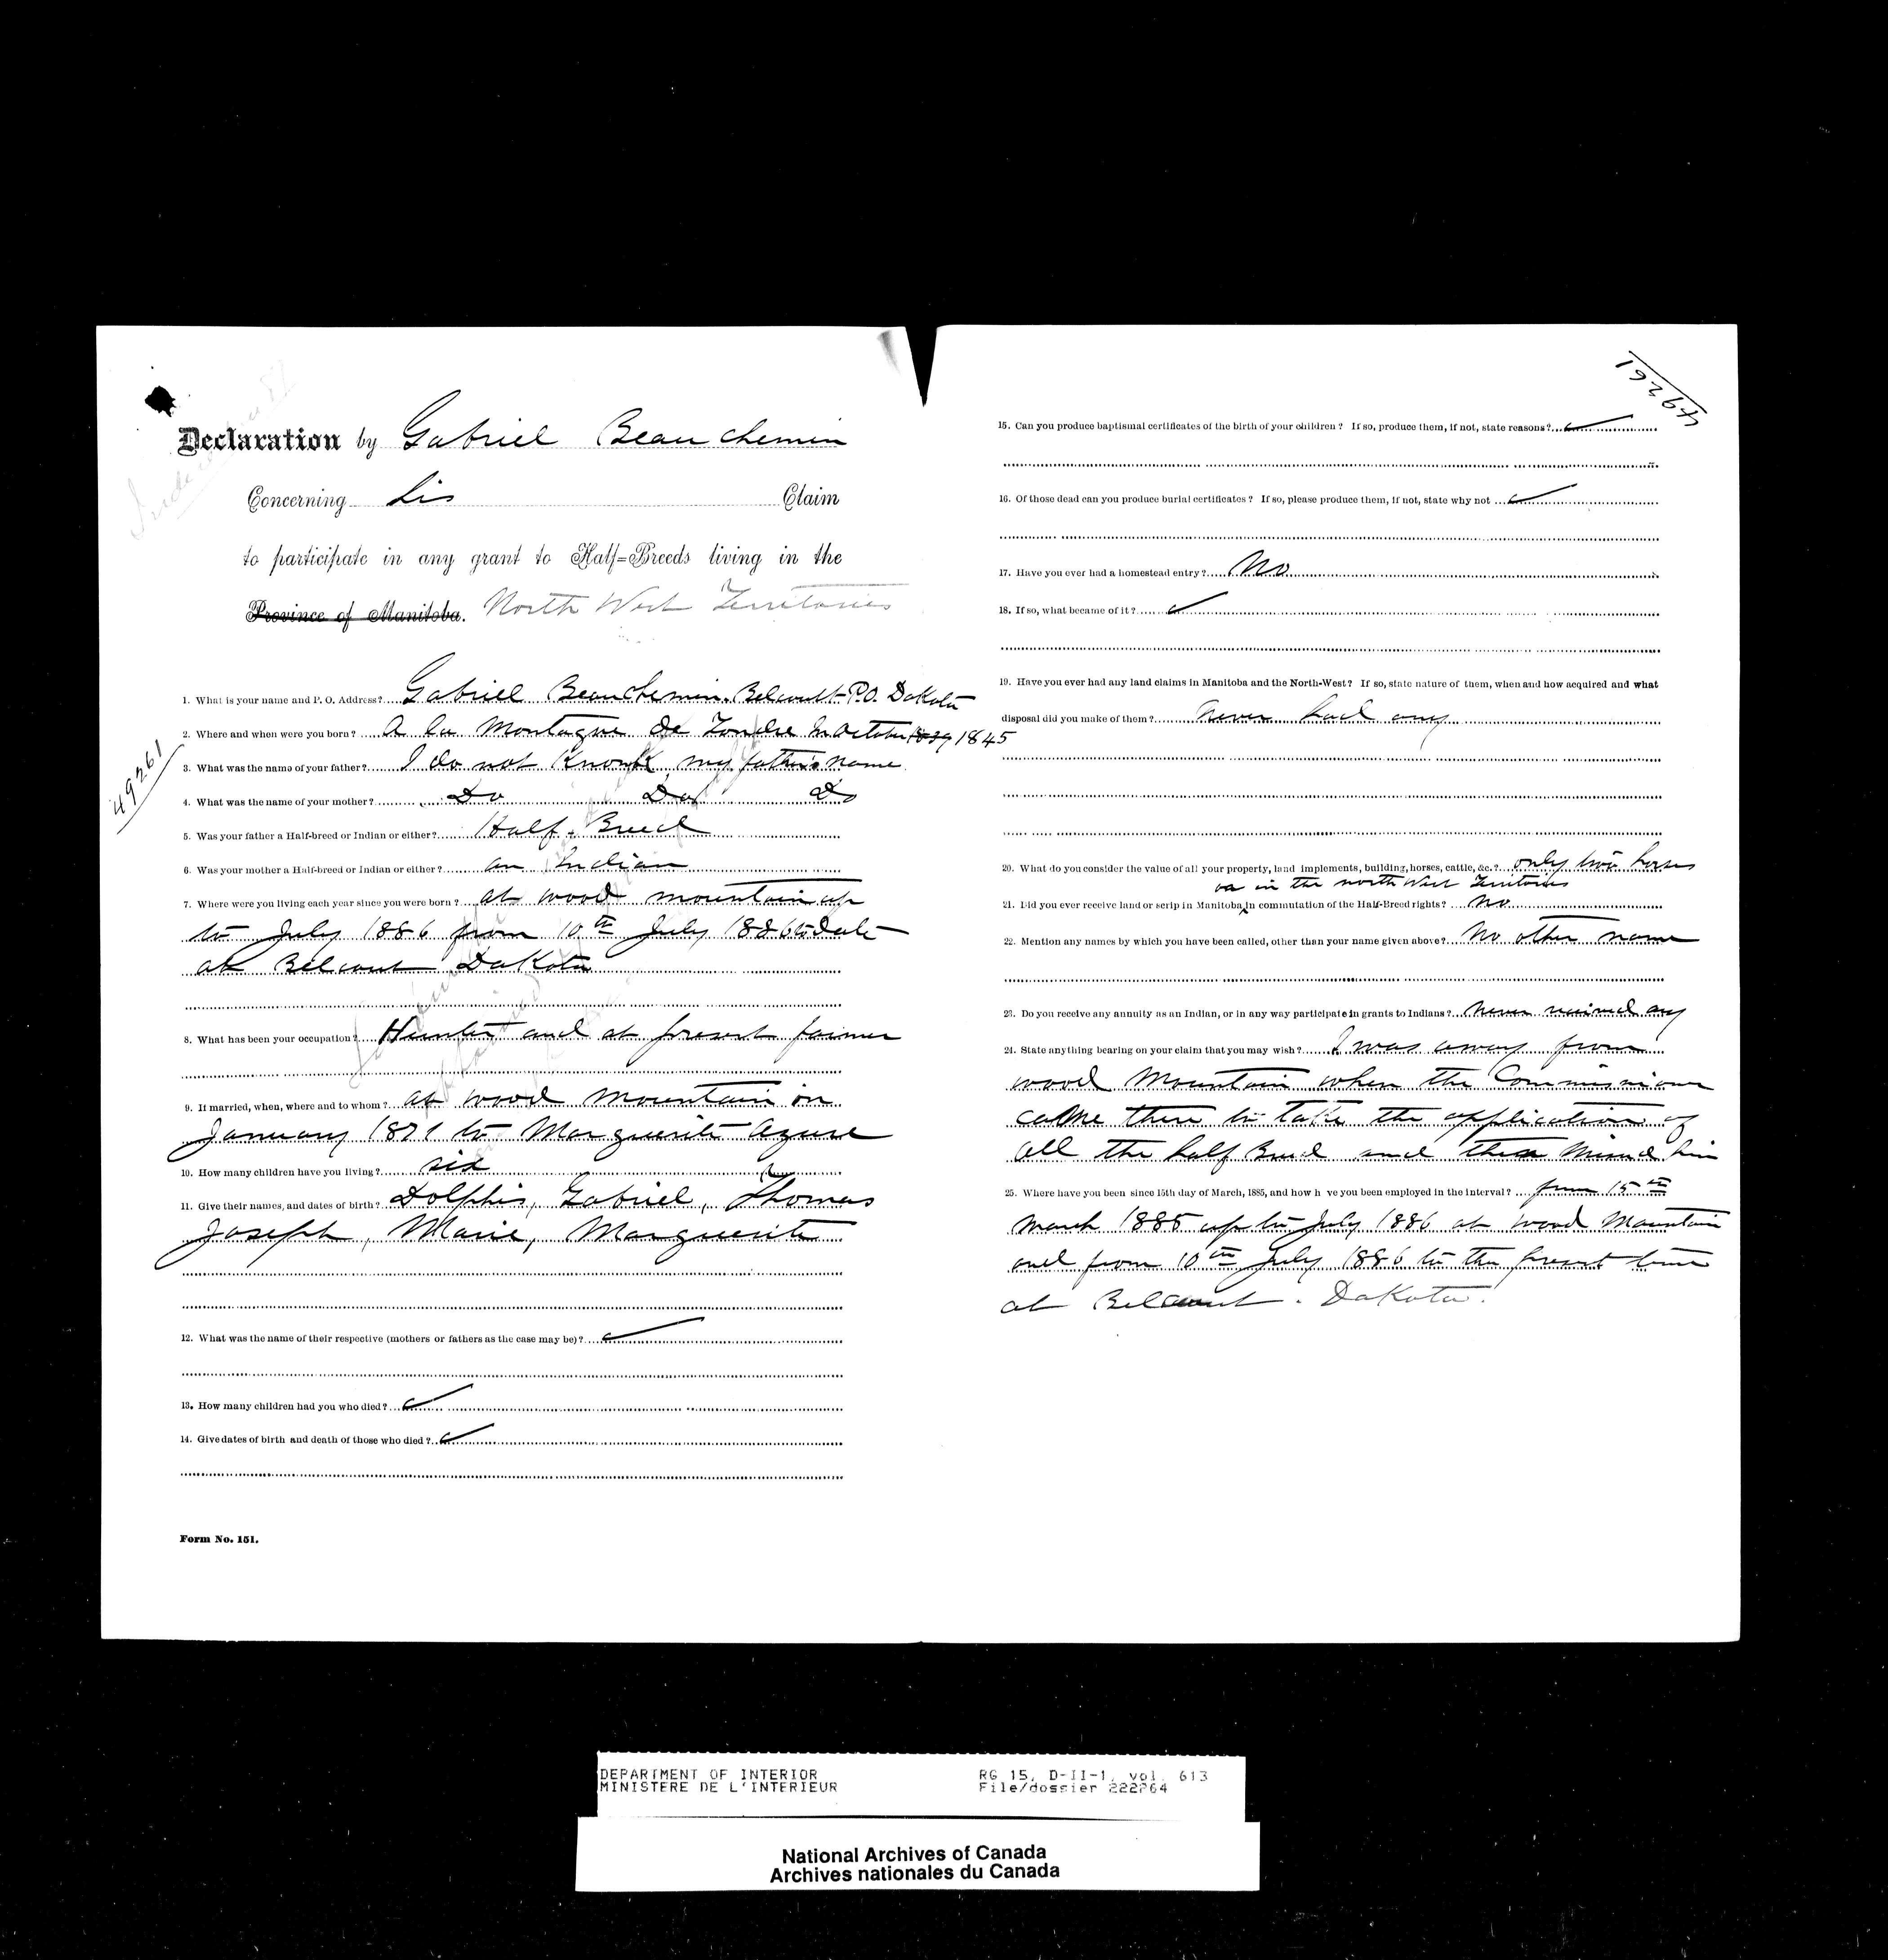 Declaration by Gabriel Beauchemin
Concerning his Claim
to participate in any grant to Half-Breeds living in the
Province of Manitoba. North West Territories
1. What is your name and P. O. Address? Gabriel Beauchemin. Belcourt P.O. Dakota
2. Where and when were you born? A la Montagne de in October 1839 1845
3. What was the name of your father? I do not Know my father's name
4. What was the name of your mother? Do Do Do
5. Was your father a Half-breed or Indian or either? Half-Breed
6. Was your mother a Half-breed or Indian or either? an Indian
7. Where were you living each year since you were born? at wood mountain up
to July 1886 from 10th July 1886 to date
at Belcourt Dakota
8. What has been your occupation? Hunter and at present farmer
9. If married, when, where and to whom? at wood mountain in
January 1871 to Marguerite Azure
10. How many children have you living? six
11. Give their names, and dates of birth? Dolphis, Gabriel, Thomas
Joseph, Marie, Marguerite
12. What was the name of their respective (mothers or fathers as the case may be)?
13. How many children had you who died?
14. Give dates of birth and death of those who died?
Form No. 151.
49261
49261
15. Can you produce baptismal certificates of the birth of your children? If so, produce them, if not, state reasons?
16. Of those dead can you produce burial certificates? If so, please produce them, if not, state why not
17. Have you ever had a homestead entry? No
18. If so, what became of it?
19. Have you ever had any land claims in Manitoba and the North-West? If so, state nature of them, when and how acquired and what
disposal did you make of them? never had any
20. What do you consider the value of all your property, land implements, building, horses, cattle, &c.? only two horses
or in the north West Territories
21. Did you ever receive land or scrip in Manitoba in commutation of the Half-Breed rights? no
22. Mention any names by which you have been called, other than your name given above? No other name
23. Do you receive any annuity as an Indian, or in any way participate in grants to Indians? Never received any
24. State anything bearing on your claim that you may wish? I was away from
wood Mountain when the Commissioner
came there to take the application of
all the half Breed and then missed him
25. Where have you been since 15th day of March, 1885, and how h ve you been employed in the interval? from 15th
March 1885 up to July 1886 at wood Mountain
and from 10th July 1886 to the present time
at Belcourt. Dakota.
DEPARTMENT OF INTERIOR RG 15, D-II-1, vol. 613
MINISTERE DE L'INTERIEUR File/dossier 222264
National Archives of Canada
Archives nationales du Canada